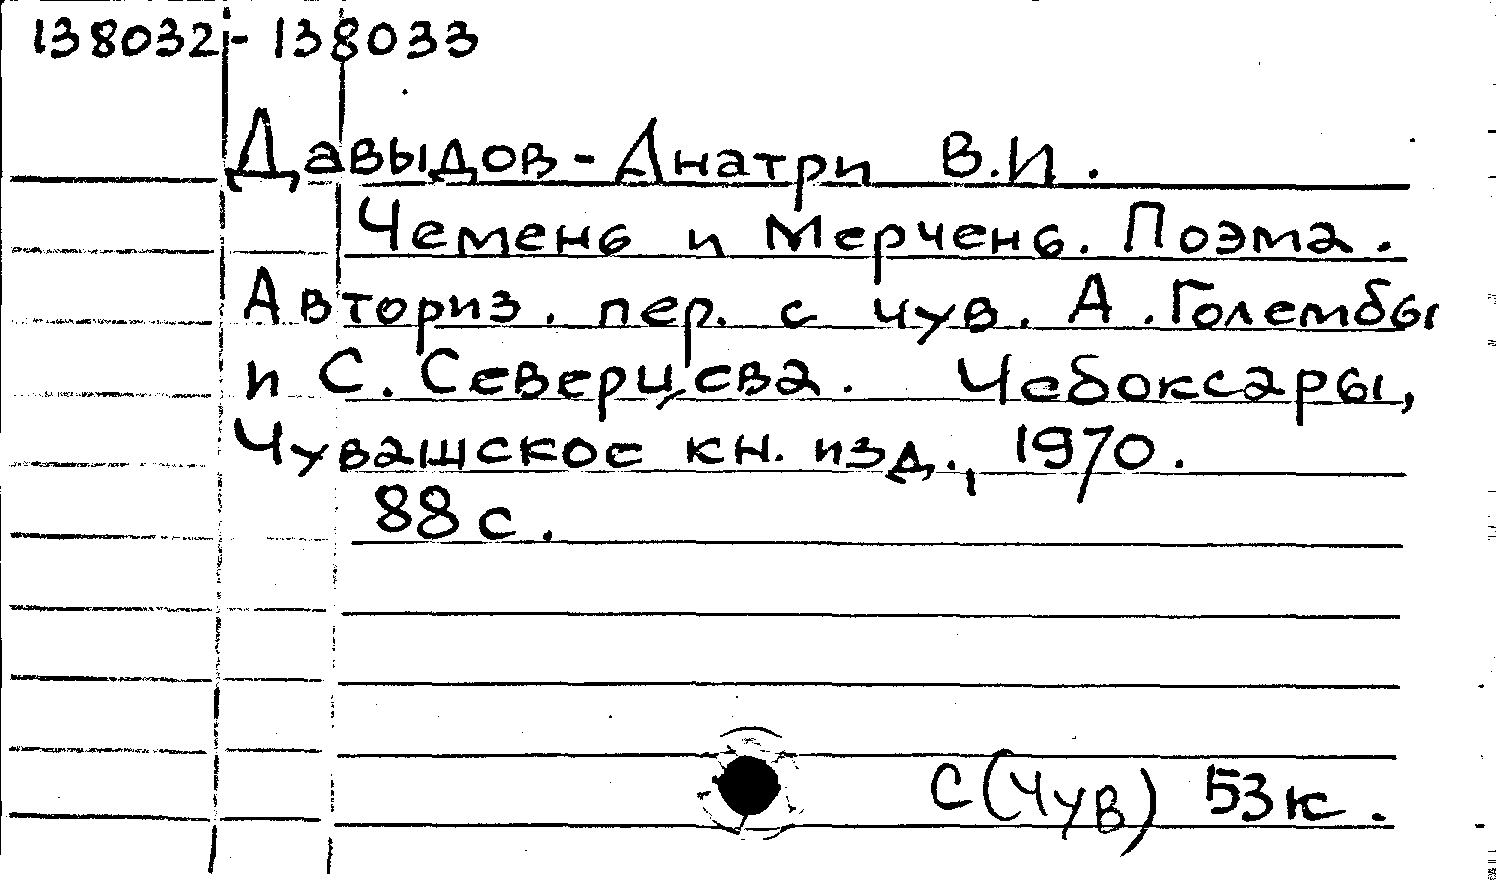 138032 - 138033
Давыдов - Анатри В.И.
Чемень и Мерчень. Поэма.
Авториз. пер. с чув. А. Голембы
и С. Северцева. Чебоксары,
Чувашское кн. изд., 1970.
88 с.
С(Чув) 53к.